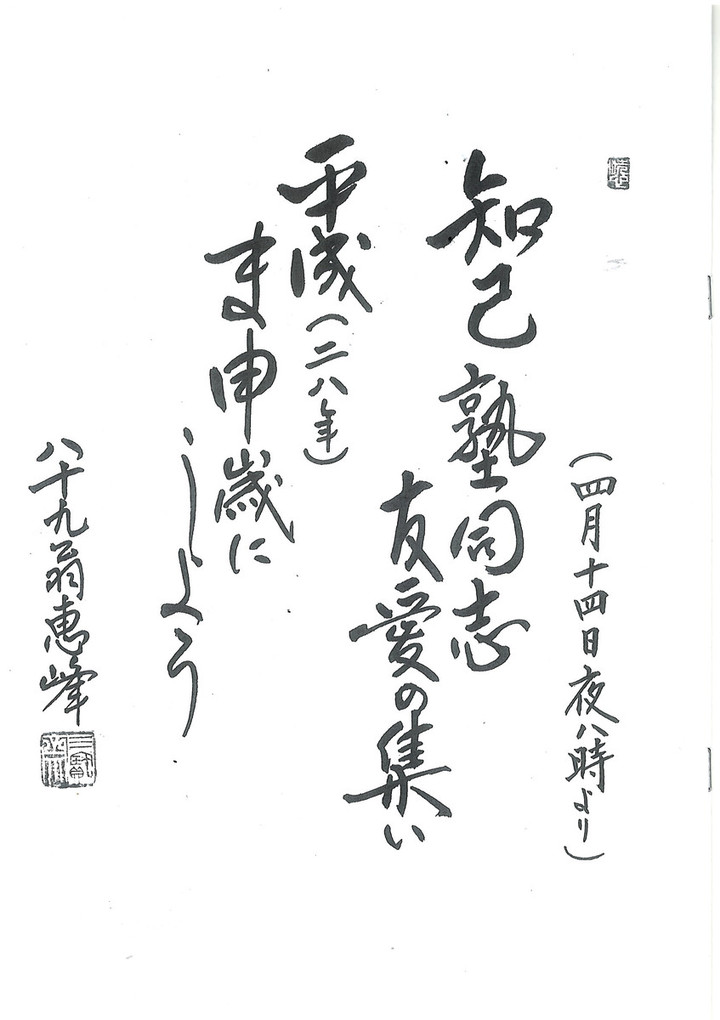 （四月十四日夜八時より）
知己塾同志
友愛の集い
平成（二八年）
ま申歳に
しよう
八十九翁恵峰